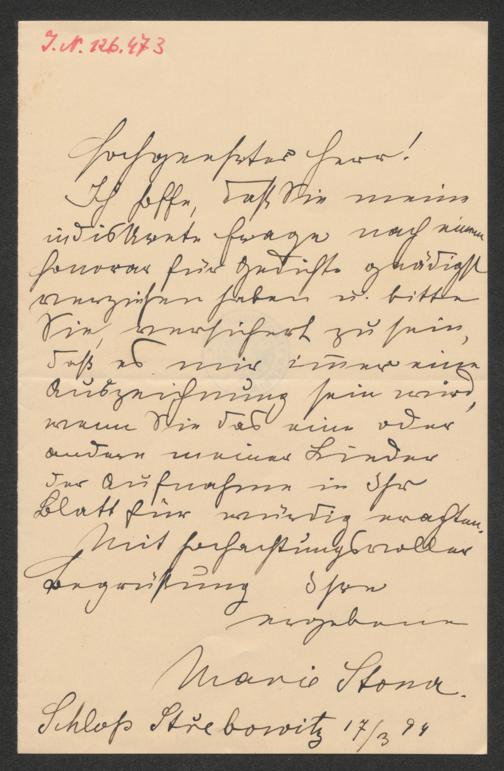 J. N. 126.473
Hochgeehrter Herr!
Ich hoffe, daß Sie meine
indiskrete Frage nach einem
Honorar für Gedichte gnädigst
verziehen haben u. bitte
Sie, versichert zu sein,
daß es mir im̅er eine
Auszeichnung sein wird,
wenn Sie das eine oder
andere meiner Lieder
der Aufnahme in Ihr
Blatt für würdig erachten.
Mit hochachtungsvoller
Begrüßung Ihre
ergebene
Marie Stona.
Schloß Střebowitz 17/3 94